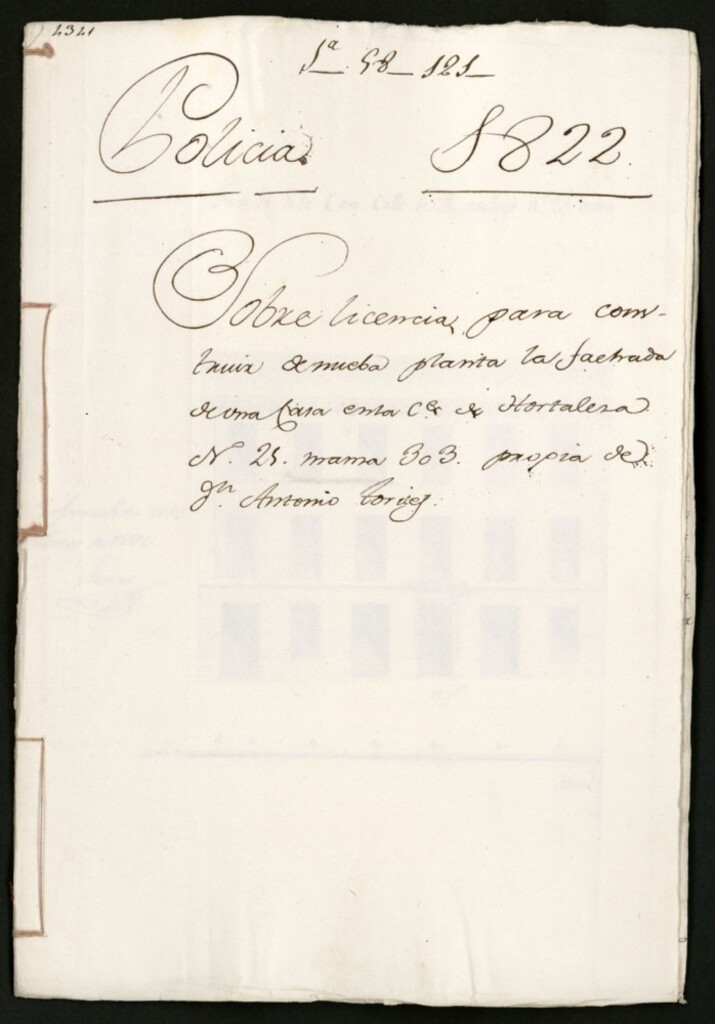 4341
1ª 58 121
Policia. 1822.
Sobre licencia para cons-
truir de nueba planta la fachada
de una Casa en la Ce. de Hortaleza
N. 25. manza 303. propia de
Dn. Antonio Torije.